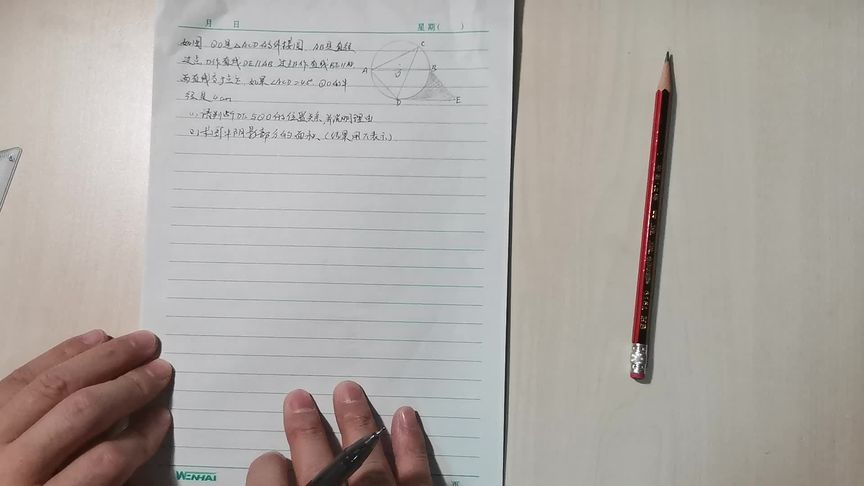 月 日 星期( )
如图 ⊙O是△ACD的外接圆, AB是直径
过点D作直线DE∥AB 过点B作直线BE∥AD
两直线交于点E, 如果∠ACD=45° ⊙O的半
径是4cm
(1) 请判断DE与⊙O的位置关系 并说明理由
(2) 求图中阴影部分的面积、(结果用π表示)
A
C
B
O
D
E
WENHAI